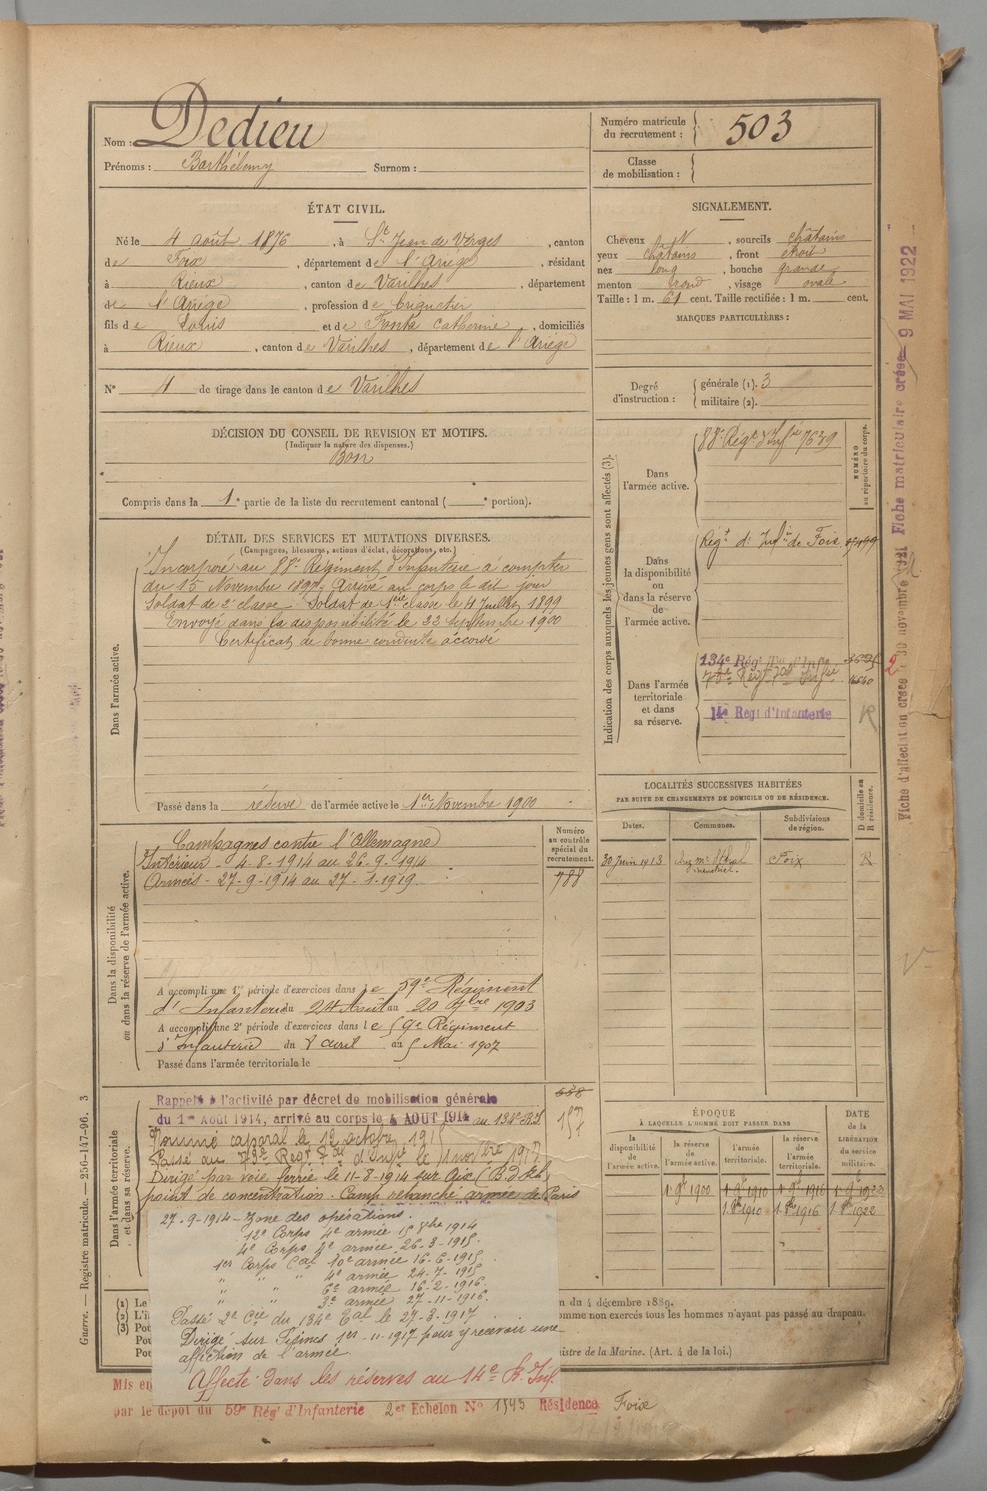 Nom : Dedieu
Prénoms : Barthélemy Surnom :
Numéro matricule du recrutement : 503
Classe de mobilisation :
ÉTAT CIVIL.
Né le 4 août 1876, à St Jean de Verges, canton
de Foix, département de l'Ariége, résidant
à Rieux, canton de Varilhes, département
de l'Ariége, profession de briquetier
fils de Louis et de Fonta Catherine, domiciliés
à Rieux, canton de Varilhes, département de l'Ariége
N° 4 de tirage dans le canton de Varilhes
SIGNALEMENT.
Cheveux N, sourcils châtains
yeux châtains, front étroit
nez long, bouche grande
menton rond, visage ovale
Taille : 1 m. 61 cent. Taille rectifiée : 1 m. cent.
MARQUES PARTICULIÈRES :
Degré d'instruction : générale (1). 3
militaire (2).
DÉCISION DU CONSEIL DE REVISION ET MOTIFS.
(Indiquer la nature des dispenses.)
Bon
Compris dans la 1e partie de la liste du recrutement cantonal ( e portion).
DÉTAIL DES SERVICES ET MUTATIONS DIVERSES.
(Campagnes, blessures, actions d'éclat, décorations, etc.)
Dans l'armée active.
Incorporé au 88e Régiment d'Infanterie à compter
du 15 Novembre 1897, Arrivé au corps le dit jour
Soldat de 2e classe. Soldat de 1ère classe le 4 Juillet 1899
Envoyé dans la disponibilité le 22 Septembre 1900
Certificat de bonne conduite accordé
Passé dans la réserve de l'armée active le 1er Novembre 1900
Indication des corps auxquels les jeunes gens sont affectés (3).
NUMÉRO au répertoire du corps.
Dans l'armée active.
88e Régt d'Infie 7639
Dans la disponibilité ou dans la réserve de l'armée active.
Régt d'Infie de Foix
Dans l'armée territoriale et dans sa réserve.
134e Régt Tal d'Infie
14e Regt d'Infanterie R
LOCALITÉS SUCCESSIVES HABITÉES
PAR SUITE DE CHANGEMENTS DE DOMICILE OU DE RÉSIDENCE.
Dates. Communes. Subdivisions de région. D domicile ou R résidence.
30 Juin 1913 Foix R
Dans la disponibilité ou dans la réserve de l'armée active.
Numéro au contrôle spécial du recrutement.
788
Campagnes contre l'Allemagne
Intérieur - 4-8-1914 au 26-9-1914
Armées - 27-9-1914 au 27-1-1919
A accompli une 1re période d'exercices dans le 59e Régiment
d'Infanterie du 24 Août au 20 7bre 1903
A accompli une 2e période d'exercices dans le 59e Régiment
d'Infanterie du 8 avril au 5 Mai 1907
Passé dans l'armée territoriale le
Dans l'armée territoriale et dans sa réserve.
Rappelé à l'activité par décret de mobilisation générale
du 1er Août 1914, arrivé au corps le 4 AOUT 1914 au 134e R.T.
Nommé caporal le 12 octobre 1915
Passé au 73e Régt Tal d'Infie le
Dirigé par voie ferrée le 11-8-1914 sur Aix (B. d. Rh)
point de concentration. Camp retranché armée de Paris
27-9-1914 - Zone des opérations.
12e Corps 4e armée 15 8bre 1914
4e Corps 2e armée 26-3-1915.
1er Corps Cal 10e armée 16-6-1915.
" " " 4e armée 24-7-1915
" " 6e armée 16-2-1916.
" " 3e armée 27-11-1916.
Passé 2e Cie du 134e Tal le 27-3-1917
Dirigé sur Fismes 1er-11-1917 pour y recevoir une
affection de l'armée.
Affecté dans les réserves au 14e R. Inf
ÉPOQUE
À LAQUELLE L'HOMME DOIT PASSER DANS
la disponibilité de l'armée active. la réserve de l'armée active. l'armée territoriale. la réserve de l'armée territoriale. DATE de la LIBÉRATION DU SERVICE militaire.
1 9bre 1900 1 9bre 1910 1 9bre 1916 1 9bre 1922
1. 8bre 1910 1. 8bre 1916 1 8bre 1922
(1) Le
(2) L'i
(3) Pou
Pou
Pou
on du 4 décembre 1889.
omme non exercés tous les hommes n'ayant pas passé au drapeau.
nistre de la Marine. (Art. 4 de la loi.)
Mis en
par le dépot du 59e Régt d'Infanterie 2er Echelon N° 1545 Résidence Foix
Guerre. — Registre matricule. — 256-147-96. 3
Fiche d'affectation créée le 30 novembre 1921 Fiche matriculaire créée 9 MAI 1922
2